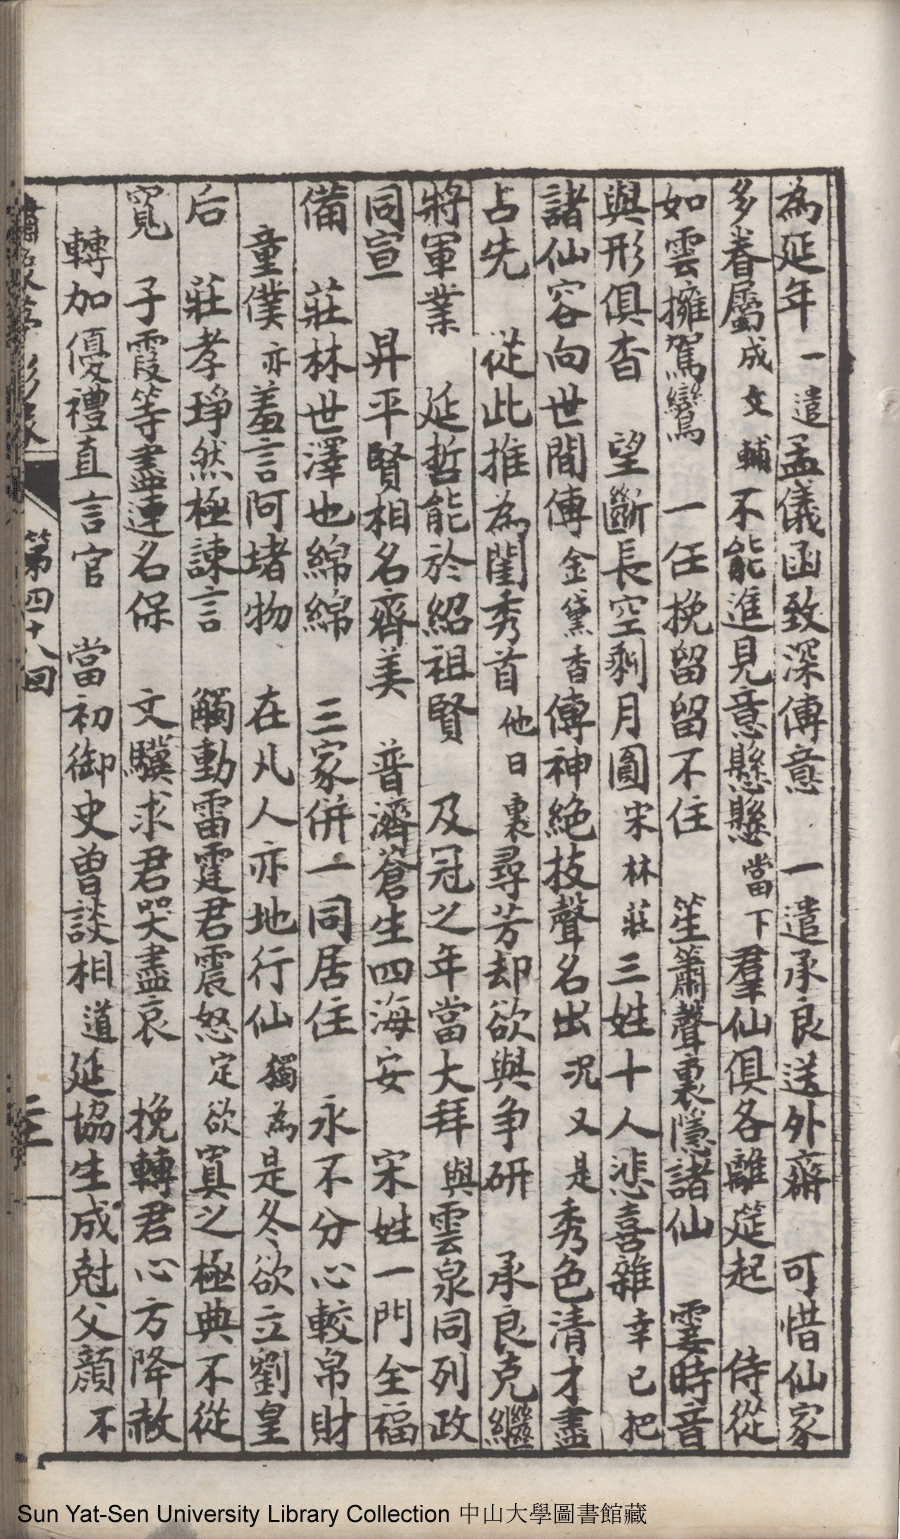 為延年　一遣孟儀函致深傳意　一遣承良送外齋　可惜仙家
多眷屬成文輔不能進見意懸懸當下羣仙俱各離筵起　侍從
如雲擁駕鸞　一任挽留留不住　笙簫聲裏隱諸仙　霎時音
與形俱杳　望斷長空剩月圓宋林莊三姓十人悲喜雜幸已把
諸仙容向世間傳金黛香傳神絶技聲名出况又是秀色清才盡
占先　從此推為閨秀首他日裏尋芳却欲與争研　承良克繼
將軍業　延哲能於紹祖賢　及冠之年當大拜與雲泉同列政
同宣　昇平賢相名齊美　普濟蒼生四海安　宋姓一門全福
備　莊林世澤也綿綿　三家併一同居住　永不分心較帛財
童僕亦羞言阿堵物　在凡人亦地行仙獨為是冬冬欲立劉皇
后　莊孝琤然極諫言　觸動雷霆君震怒定欲寘之極典不從
寬　子霞等盡連名保　文驥求君哭盡哀　挽轉君心方降赦
轉加優禮直言官　當初御史曾談相道延協生成尅父顔不
第四十八回
Sun Yat-Sen University Library Collection 中山大學圖書館藏